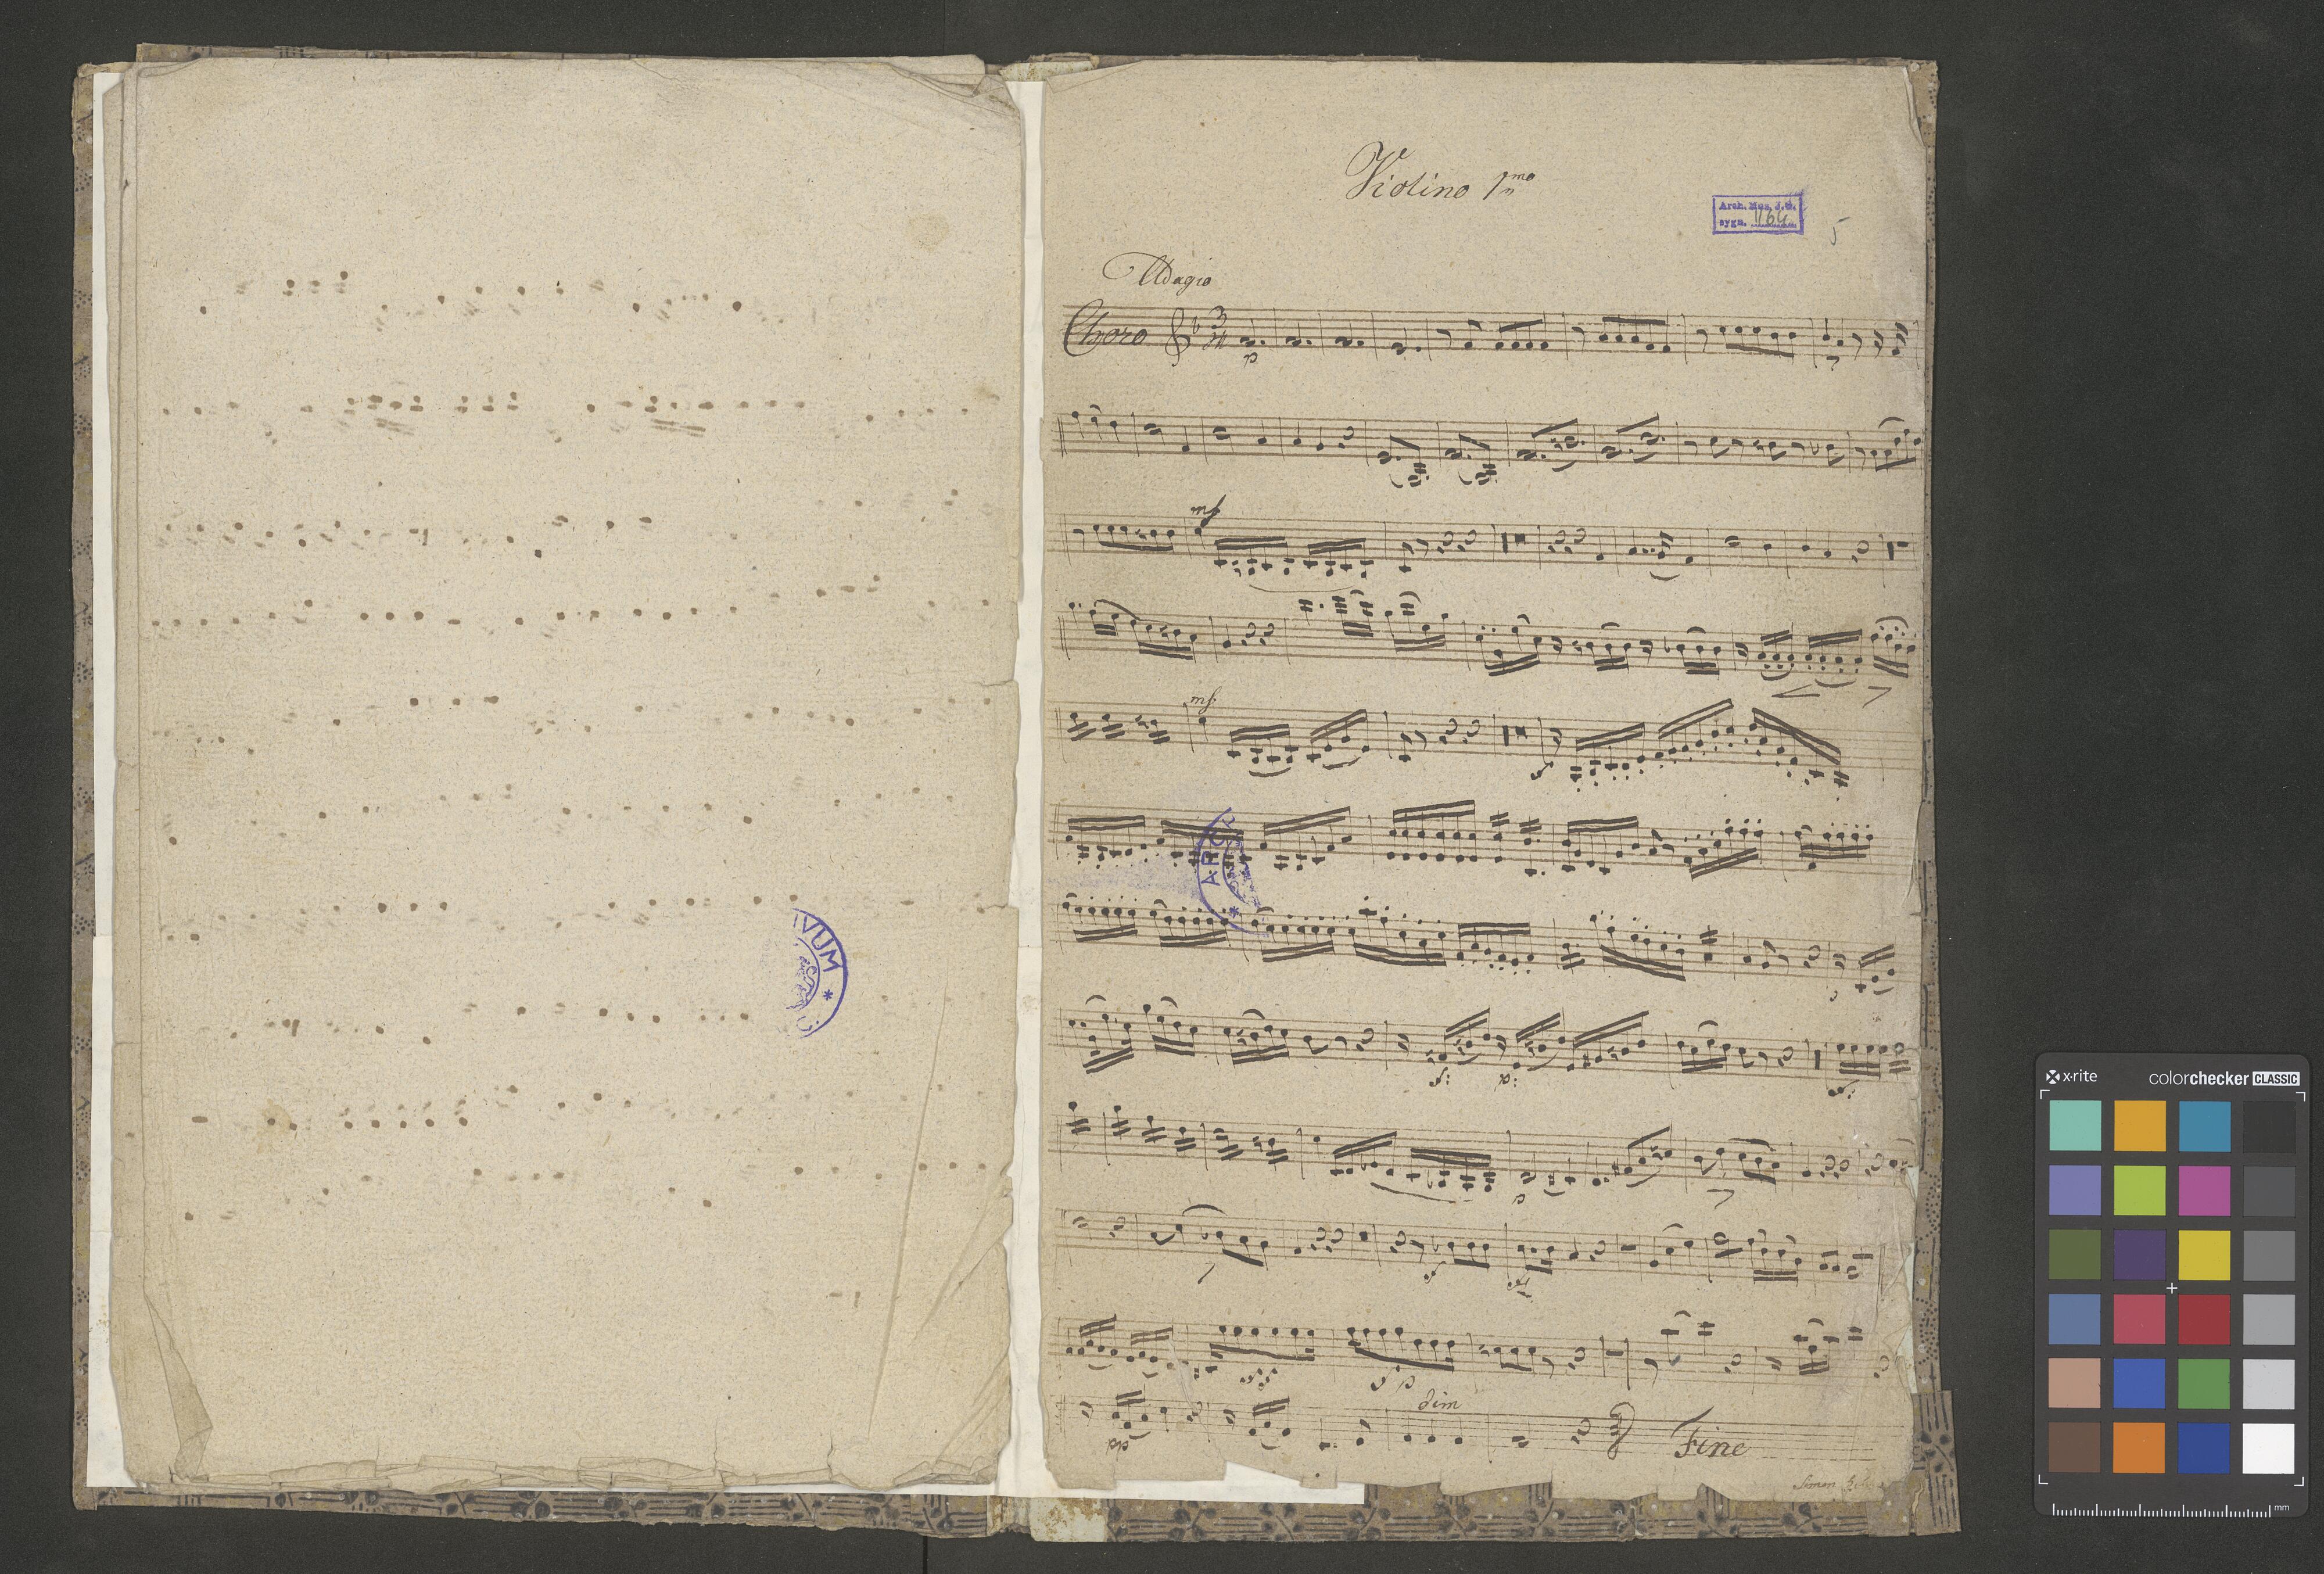 Violino 1mo
Arch. Mus. J. G.
sygn. 1164
5
Adagio
Choro
p
mf
mf
ARCH
IVUM
p
dim
pp
Fine
Simon
x-rite
colorchecker CLASSIC
mm